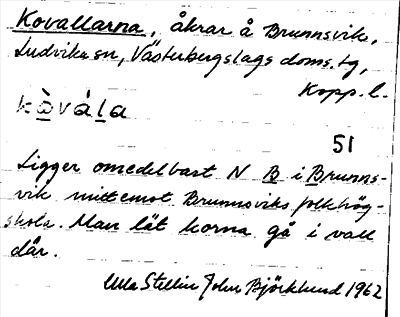 Kovallarna, åkrar å Brunnsvik,
Ludvika sn, Västerbergslags doms. tg,
Kopp. l.
kò̱váḻa
51
Ligger omedelbart N B i Brunns-
vik mittemot Brunnsviks folkhög-
skola. Man lät korna gå i vall
där.
Ulla Stellin John Björklund 1962